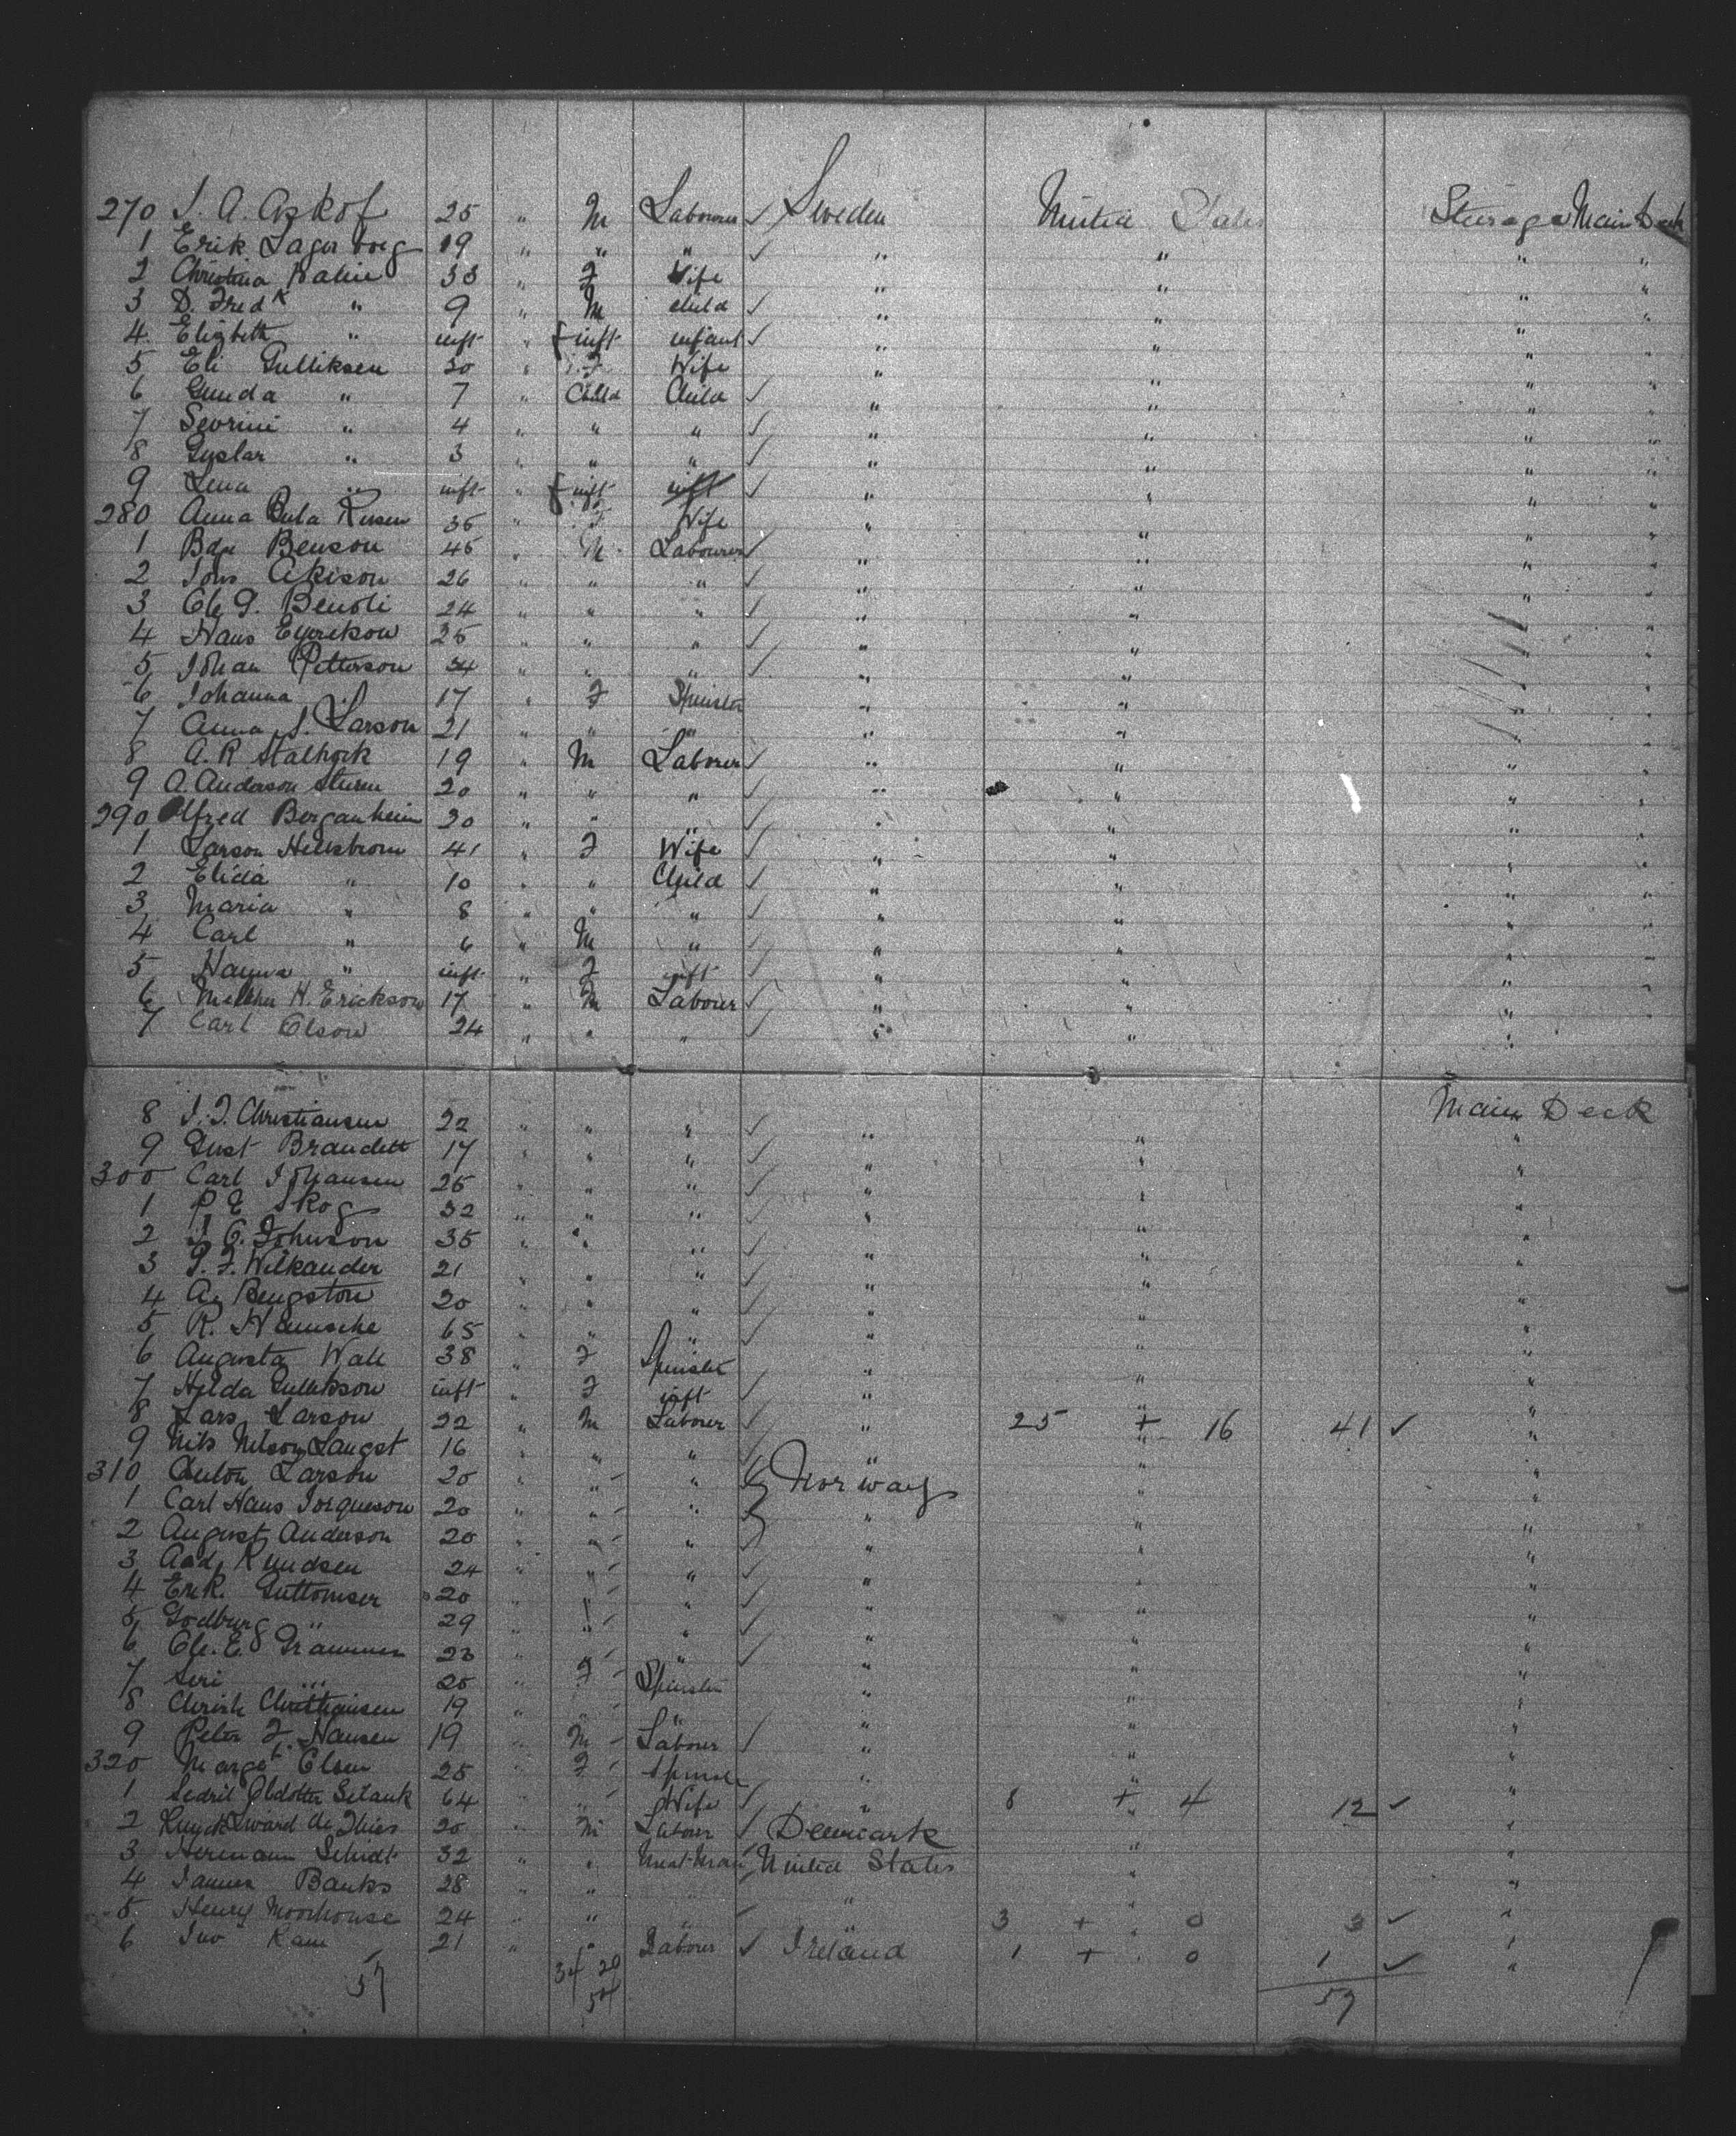 270 J. A. Askof 25 " M Labourer ✓ Sweden United States Steerage Main Deck
1 Erik Lager borg 19 " " " ✓ " " " "
2 Christina 33 " F Wife " " " "
3 D. Fredk " 9 " M child ✓ " " " "
4 Elizbeth " inft " f inft infant ✓ " " "
5 Eli Gulliksen 30 " F Wife " " " "
6 Gunda " 7 " Child Child ✓ " " " "
7 Sevrini " 4 " " " ✓ " " " "
8 Guslar " 3 " " " ✓ " " " "
9 Lena " inft " f inft ✓ " " " "
280 Anna 36 " F Wife " " " "
1 Benson 45 " M Labourer ✓ " " " "
2 Akison 26 " " " ✓ " " " "
3 Ole G. 24 " " " ✓ " " "
4 Hans 25 " " " ✓ " " " "
5 Johan Petterson 34 " " " ✓ " " " "
6 Johanna " 17 " F Spinster " " " "
7 Anna S. Larson 21 " " " " " " "
8 A. R Stalhock 19 " M Labourer ✓ " " " "
9 A. Anderson Sturm 20 " " " ✓ " " " "
290 Alfred Berganheim 20 " " " ✓ " " " "
1 Larson Hellstrom 41 " F Wife ✓ " " " "
2 Elida " 10 " " Child ✓ " " " "
3 Maria " 8 " " " ✓ " " " "
4 Carl " 6 " M " ✓ " " " "
5 " inft " F inft ✓ " " " "
6 H. Erickson 17 " M Labourer ✓ " " " "
7 Carl Olson 24 " " " ✓ " " "
8 J. F. Christiansen 22 " " " ✓ " " Main Deck
9 Gust Brandett 17 " " " ✓ " " "
300 Carl Johansen 25 " " " ✓ " " "
1 P E Skog 32 " " " ✓ " " "
2 J. O. Johnson 35 " " " ✓ " " "
3 P. F. Wilkander 21 " " " ✓ " " "
4 A. Bengston 20 " " " ✓ " " "
5 R. 65 " " " ✓ " " "
6 Augusta Wall 38 " F Spinster " " "
7 Hilda Gullikson inft " F inft ✓ " " "
8 Lars Larson 22 " M Labourer ✓ " 25 + 16 41 ✓ "
9 Nils Nilson Langst 16 " " " ✓ " " "
310 Anton Larson 20 " " " ✓ Norway " "
1 Carl Hans Jorgueson 20 " " " ✓ " " "
2 August Anderson 20 " " " ✓ " " "
3 Aad. Knudsen 24 " " " ✓ " " "
4 Erik. 20 " " " ✓ " " "
5 Godburg " 29 " " " ✓ " " "
6 Ole. E. 23 " " " ✓ " " "
7 Siri " 25 " F Spinster " " "
8 Christiansen 19 " " " " " "
9 Peter F. Hansen 19 " M Labourer ✓ " " "
320 Margt Olsen 25 " F Spinster " " "
1 64 " " Wife ✓ " 8 + 4 12 ✓ "
2 20 " M Labour ✓ Denmark " "
3 Hermann 32 " " United States " "
4 James Banks 28 " " " " "
5 Henry Moorhouse 24 " " " ✓ " 3 + 0 3 ✓ "
6 Jno 21 " " Labour ✓ Ireland 1 + 0 1 ✓ "
57 34 20 57
54